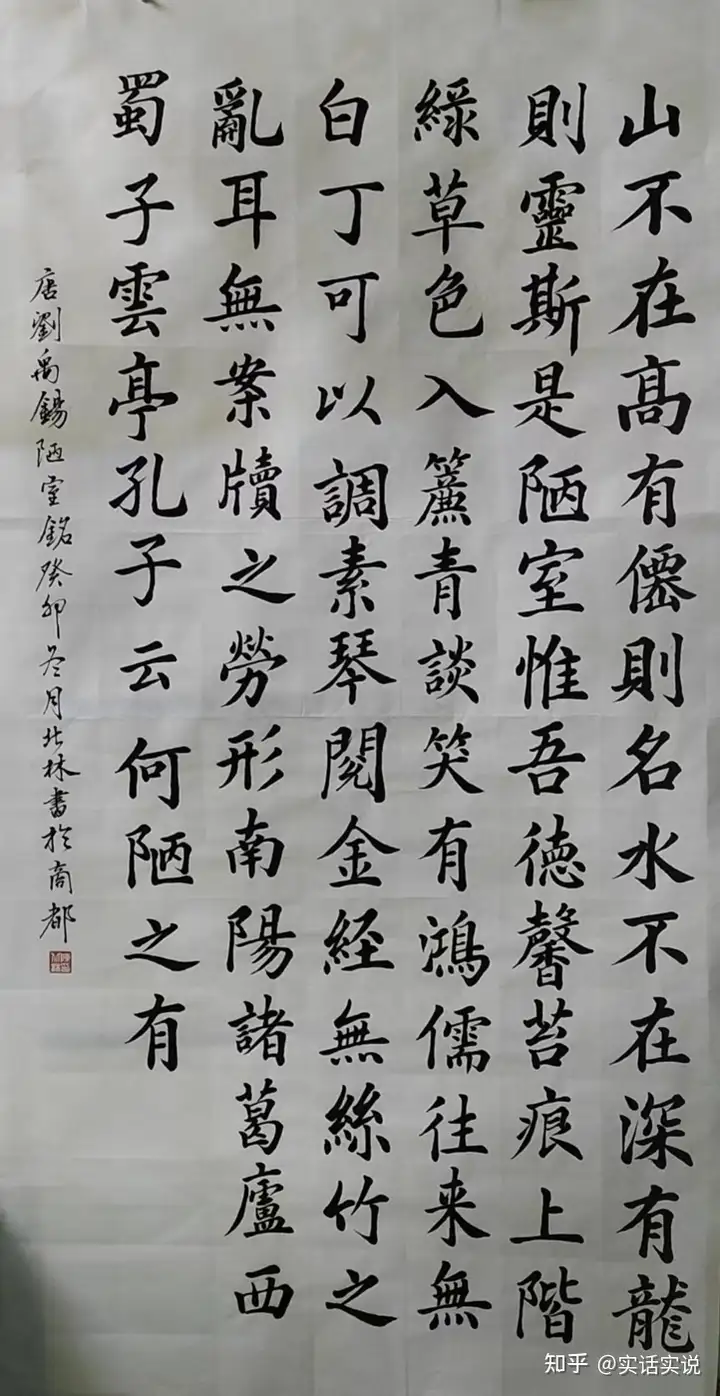 山不在髙有僊則名水不在深有龍
則靈斯是陋室惟吾徳馨苔痕上階
緑草色入簾青談笑有鴻儒往来無
白丁可以調素琴閲金経無絲竹之
亂耳無案牘之勞形南陽諸葛廬西
蜀子雲亭孔子云何陋之有
唐劉禹錫陋室銘癸卯冬月北林書於商都
知乎 @实话实说